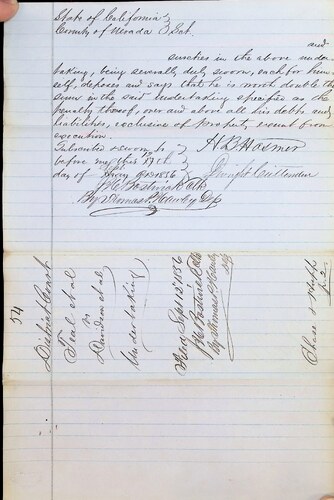 State of California
County of Nevada } Sct.
and
sureties in the above under
taking, being severally duly sworn, each for him
self, deposes and says that he is worth double the
sum in the said undertaking specified as the
penalty thereof, over and above all his debts and
liabilities, exclusive of property exempt from
execution.
Subscribed & sworn to
before me this
day of 1856
Bostwick Clk
By Thomas P. Hawley Dep
54
District Court
Teal et al
vs
Davidson et al
Undertaking
Sept 15 1856
Bostwick Clk
By Thomas P. Hawley
Dep
Chase &